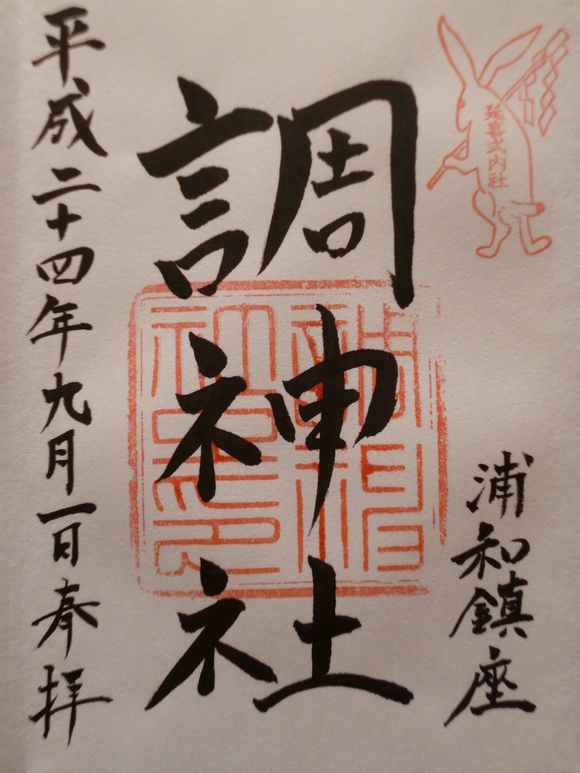 延喜式内社
浦和鎮座
調神社
平成二十四年九月一日奉拝